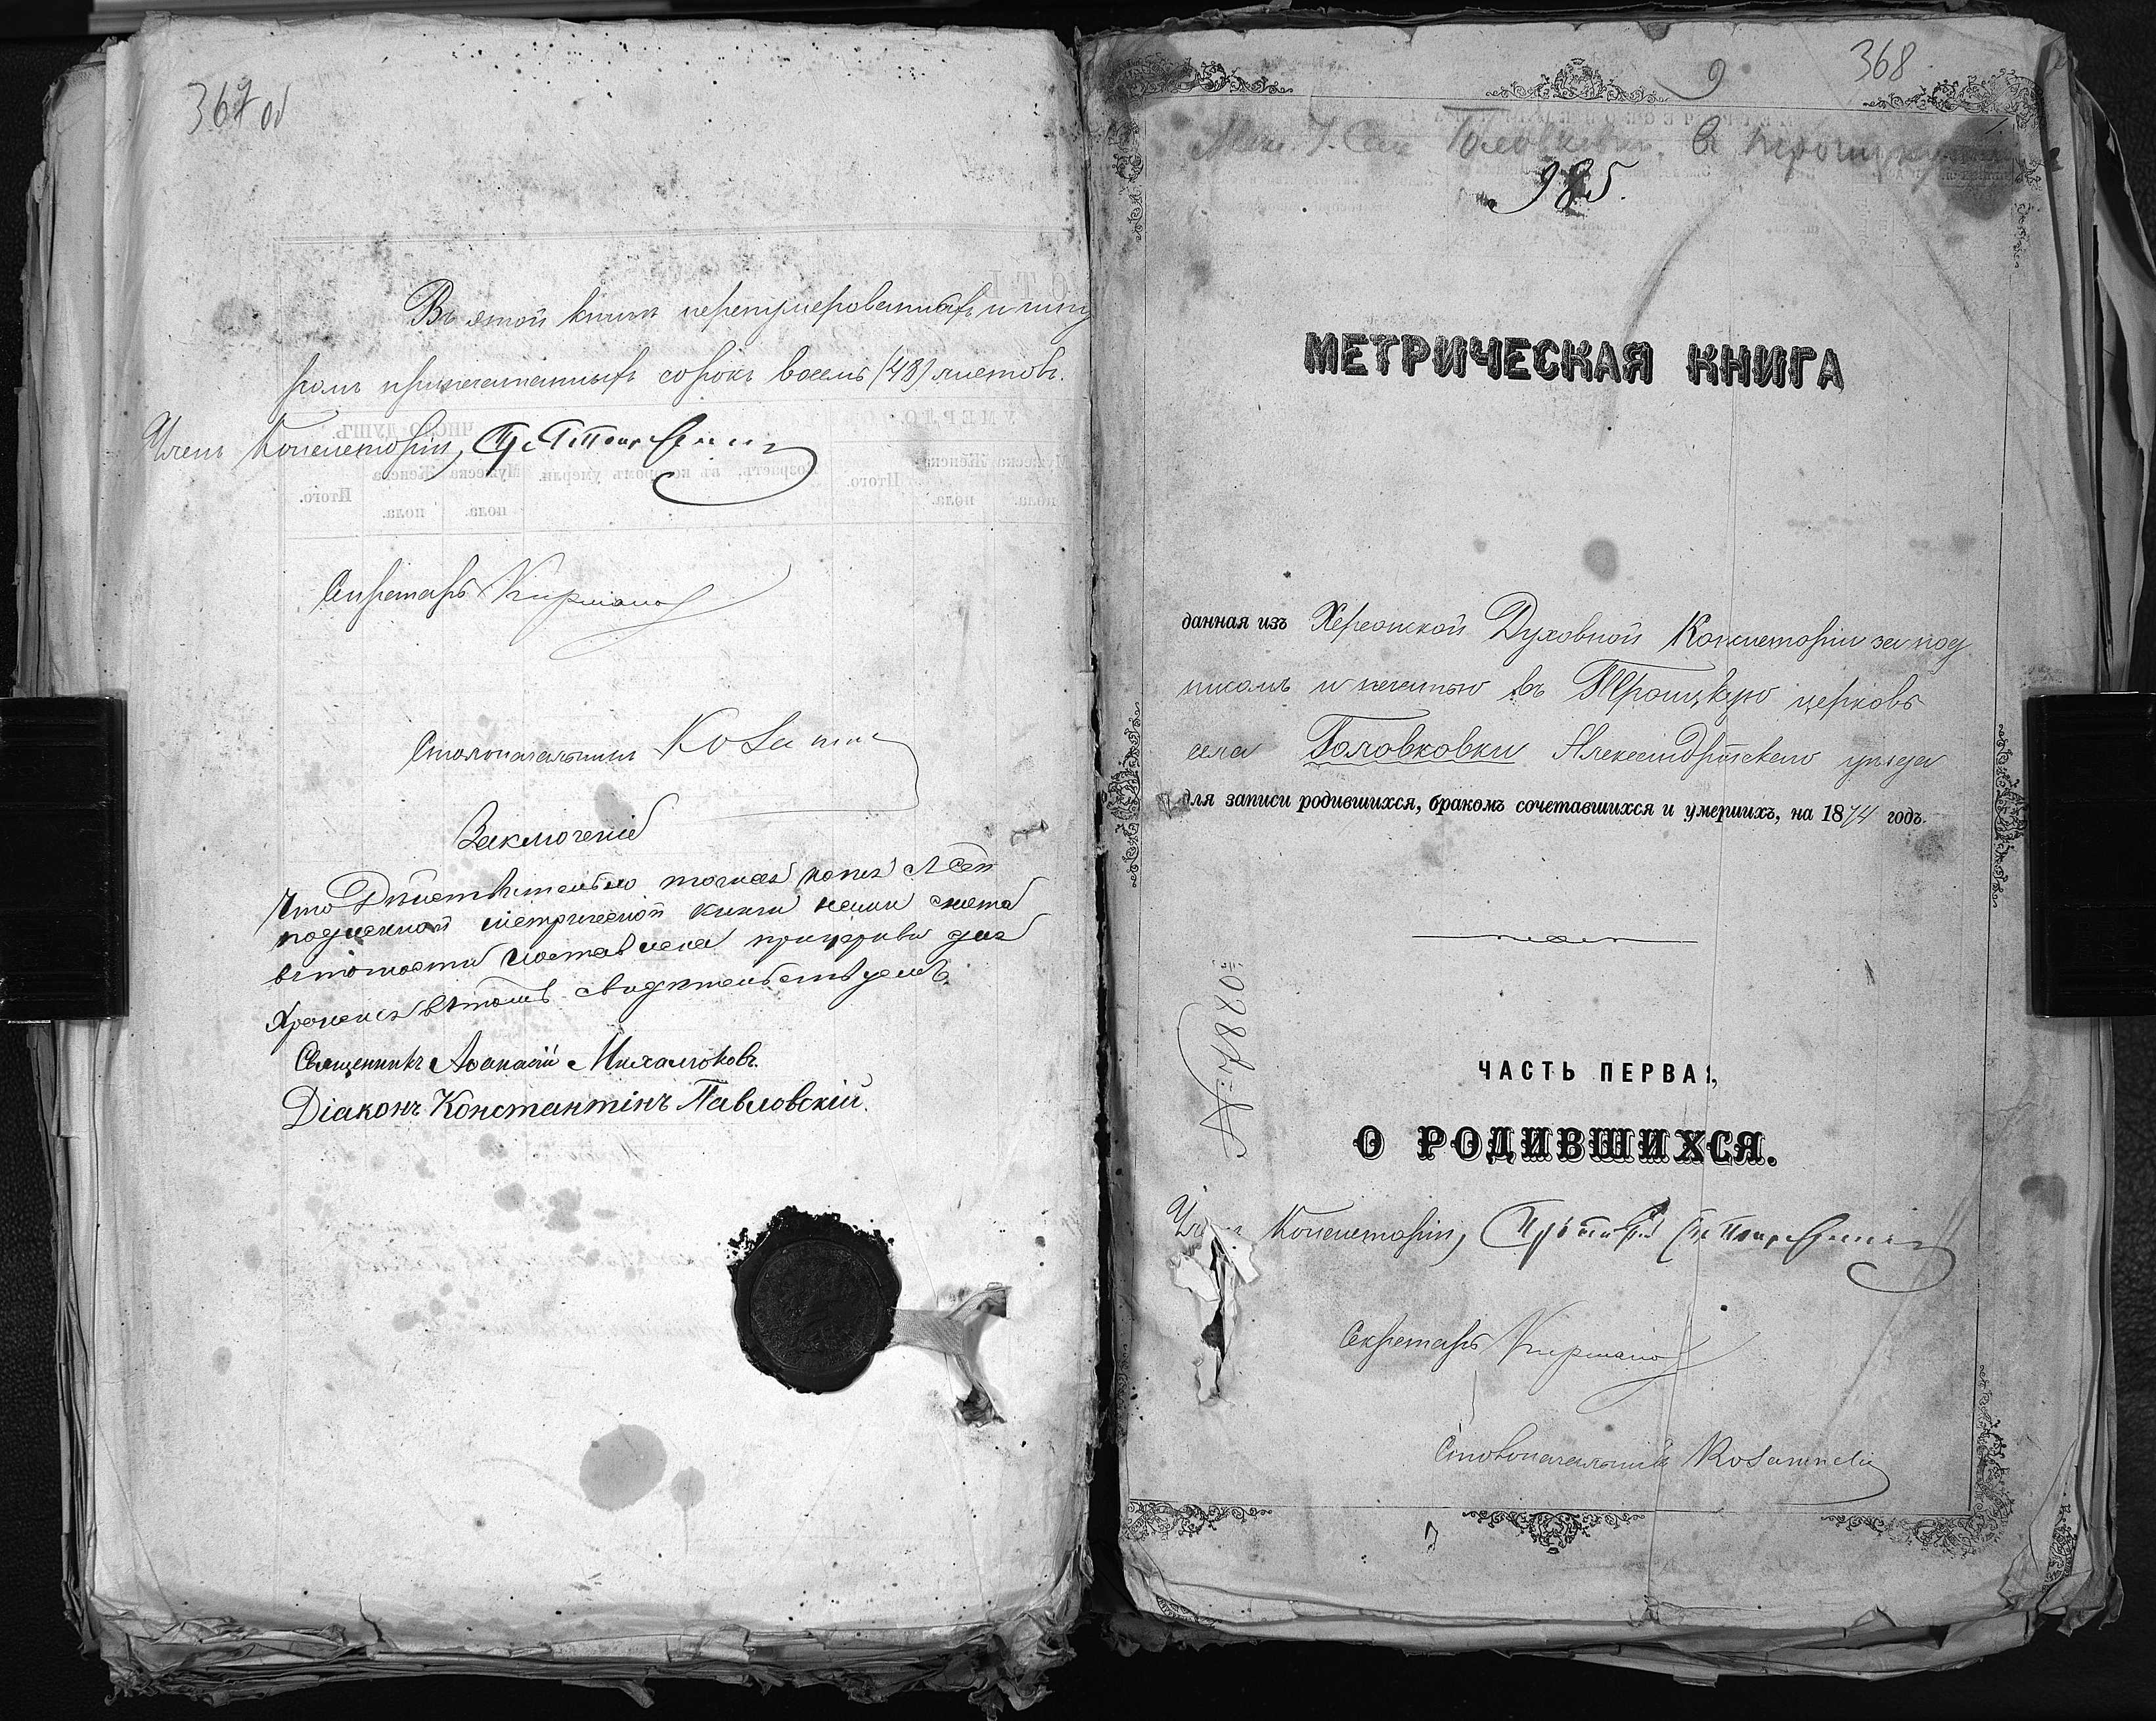 367 об
Въ этой книгѣ перенумерованныхъ и шну
ромъ припечатанныхъ сорокъ восемь (48) листовъ.
Членъ Консисторіи,
Секретарь
Столоначальникъ
Заключеніе
Что Дѣйствительно точная копія
подленной метрической книги нами
составлена при церкви для
храненія въ томъ свидѣтельствуемъ.
Священникъ Аѳанасій Михалюковъ.
Діаконъ Константінъ Павловскій.
9
368
985.
МЕТРИЧЕСКАЯ КНИГА
данная изъ Херсонской Духовной Консисторіи за под
писомъ и печатью въ Троицкую церковь
села Головковки Александрійскаго уѣзда
для записи родившихся, бракомъ сочетавшихся и умершихъ, на 1874 годъ.
№ 7870
ЧАСТЬ ПЕРВАЯ,
О РОДИВШИХСЯ.
Членъ Консисторіи, Протоіерей
Секретарь
Столоначальникъ